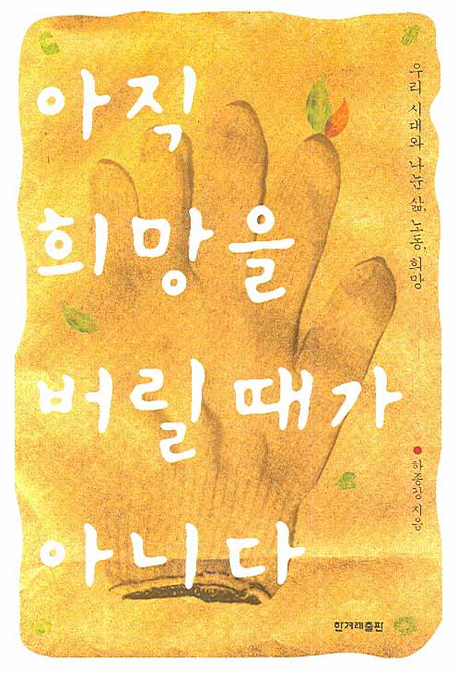 아직
희망을
버릴 때가
아니다
우리 시대와 나눈 삶, 노동, 희망
하종강 지음
한겨레출판